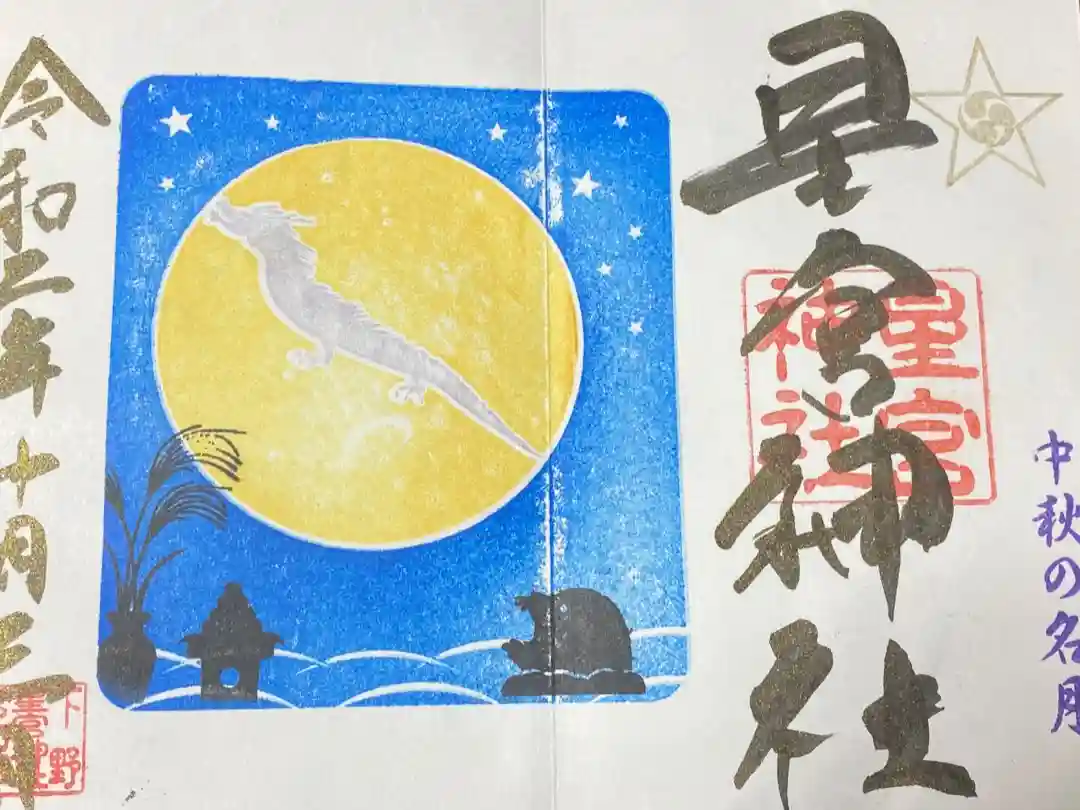 中秋の名月
星宮神社
星宮
神社
令和二年十月三日
下野